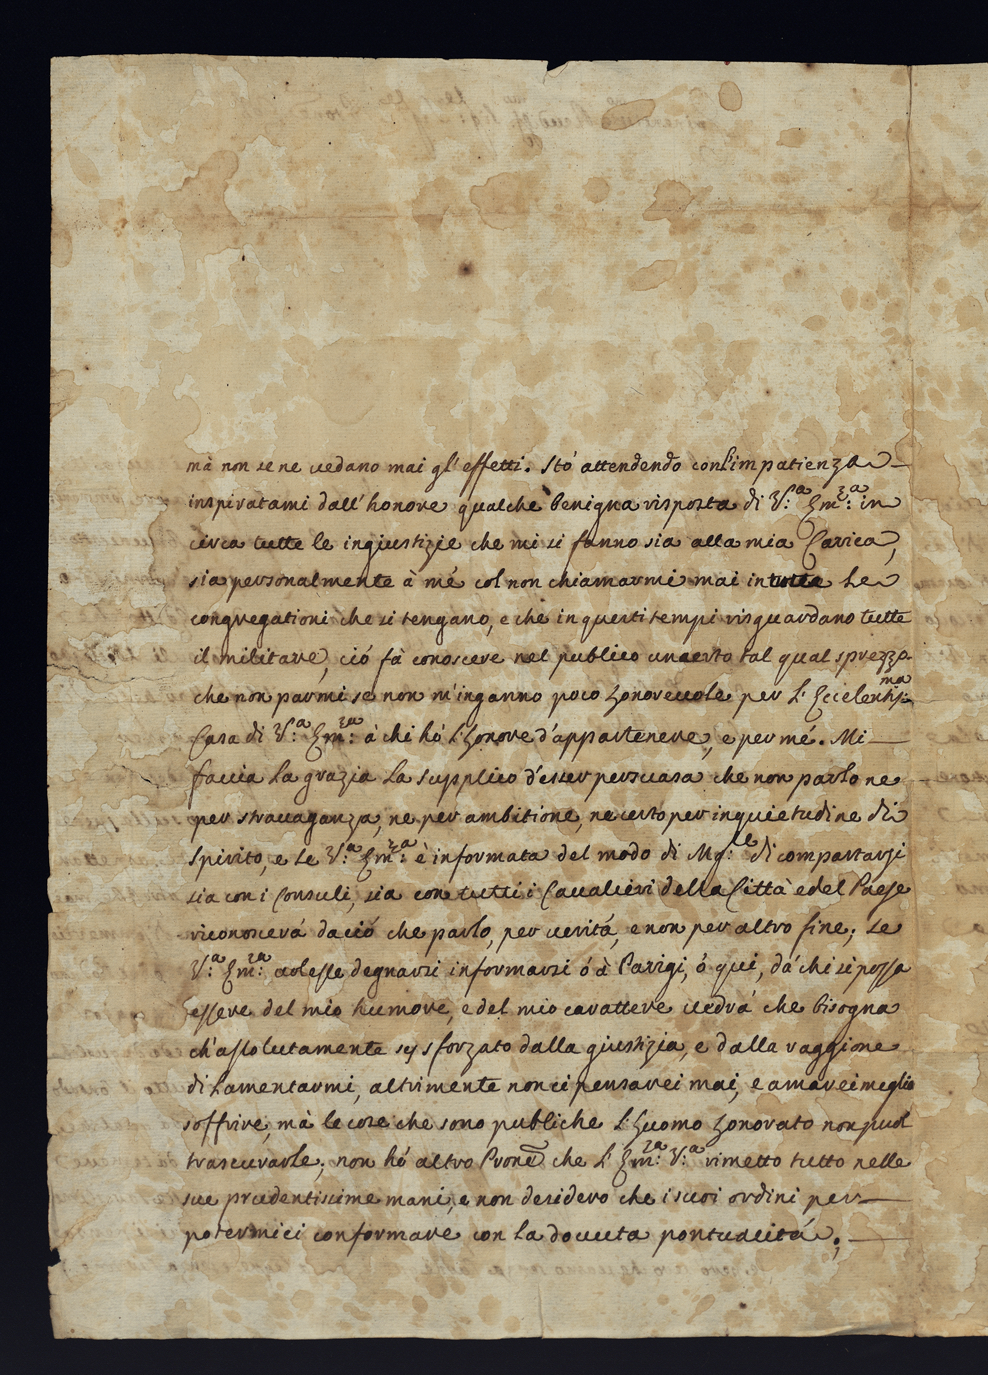 mà non se ne vedano mai gl'effetti. Stó attendendo con l'impatienza
inspiratami dall'honore qualche benigna risposta di V.ᵃ Em.ᶻᵃ in
circa tutte le ingiustizie che mi si fanno sia alla mia Carica,
sia personalmente à mé col non chiamarmi mai in tutte Le
congregationi che si tengano, e che in questi tempi risguardano tutte
il militare, ció fà conoscere nel publico un certo tal qual sprezzo
che non parmi se non m'inganno poco honorevole per L'Eccelentis:ᵐᵃ
Casa di V:ᵃ Em:ᶻᵃ à chi hó L'honore d'appartenere, e per mé. Mi
faccia La grazia La supplico d'esser persuasa che non parlo ne
per stravaganza, ne per ambitione, ne certo per inquietudine di
Spirito, e se V:ᵃ Em:ᶻᵃ è informata del modo di Mg:ˡᵉ di compartarsi
sia con i Consuli, sia con tutti i Cavalieri della Città e del Paese
riconoscerá da ció che parlo, per veritá, e non per altro fine; se
V:ᵃ Em:ᶻᵃ volesse degnarsi informarsi ó à Parigi, ó qui, dá chi si possa
essere del mio humore, e del mio carattere vedrá che bisogna
ch'assolutamente sij sforzato dalla giustizia, e dalla raggione
di Lamentarmi, altrimente non ci pensarei mai, e amarei meglio
soffrire, mà le cose che sono publiche L'huomo honorato non puol
trascurarle; non hó altro Prone che L'Em:ᶻᵃ V:ᵃ rimetto tutto nelle
sue prudentissime mani, e non desidero che i suoi ordini per
potermici conformare con La dovuta pontualitá;